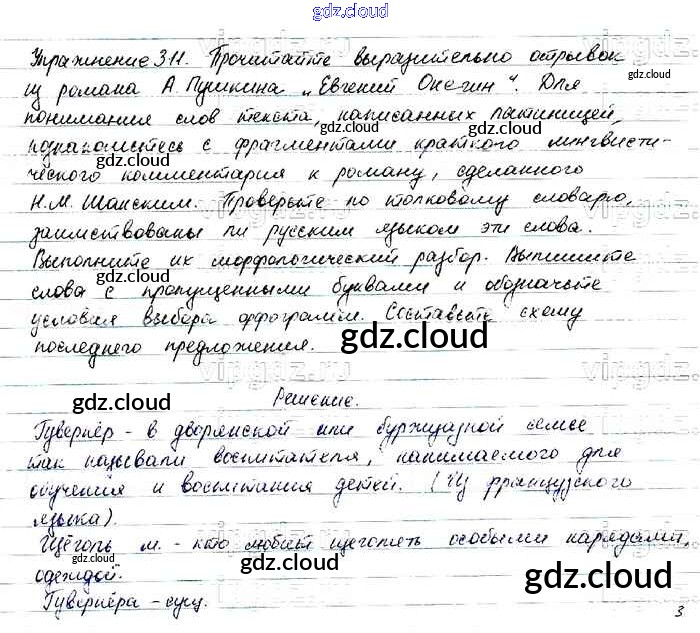 gdz.cloud
Упражнение 311. Прочитайте выразительно отрывок
из романа А. Пушкина „Евгений Онегин“. Для
понимания слов текста, написанных латиницей,
познакомьтесь с фрагментами краткого лингвисти-
ческого комментария к роману, сделанного
Н.М. Шанским. Проверьте по толковому словарю,
заимствованы ли русским языком эти слова.
Выполните их морфологический разбор. Выпишите
слова с пропущенными буквами и обозначьте
условия выбора орфограммы. Составьте схему
последнего предложения.
gdz.cloud
Решение.
Гувернёр - в дворянской или буржуазной семье
так называли воспитателя, нанимаемого для
обучения и воспитания детей. (Из французского
языка).
Щёголь м. - кто любит щеголять особыми нарядами,
одеждой.
gdz.cloud
Гувернёра - сущ.
3